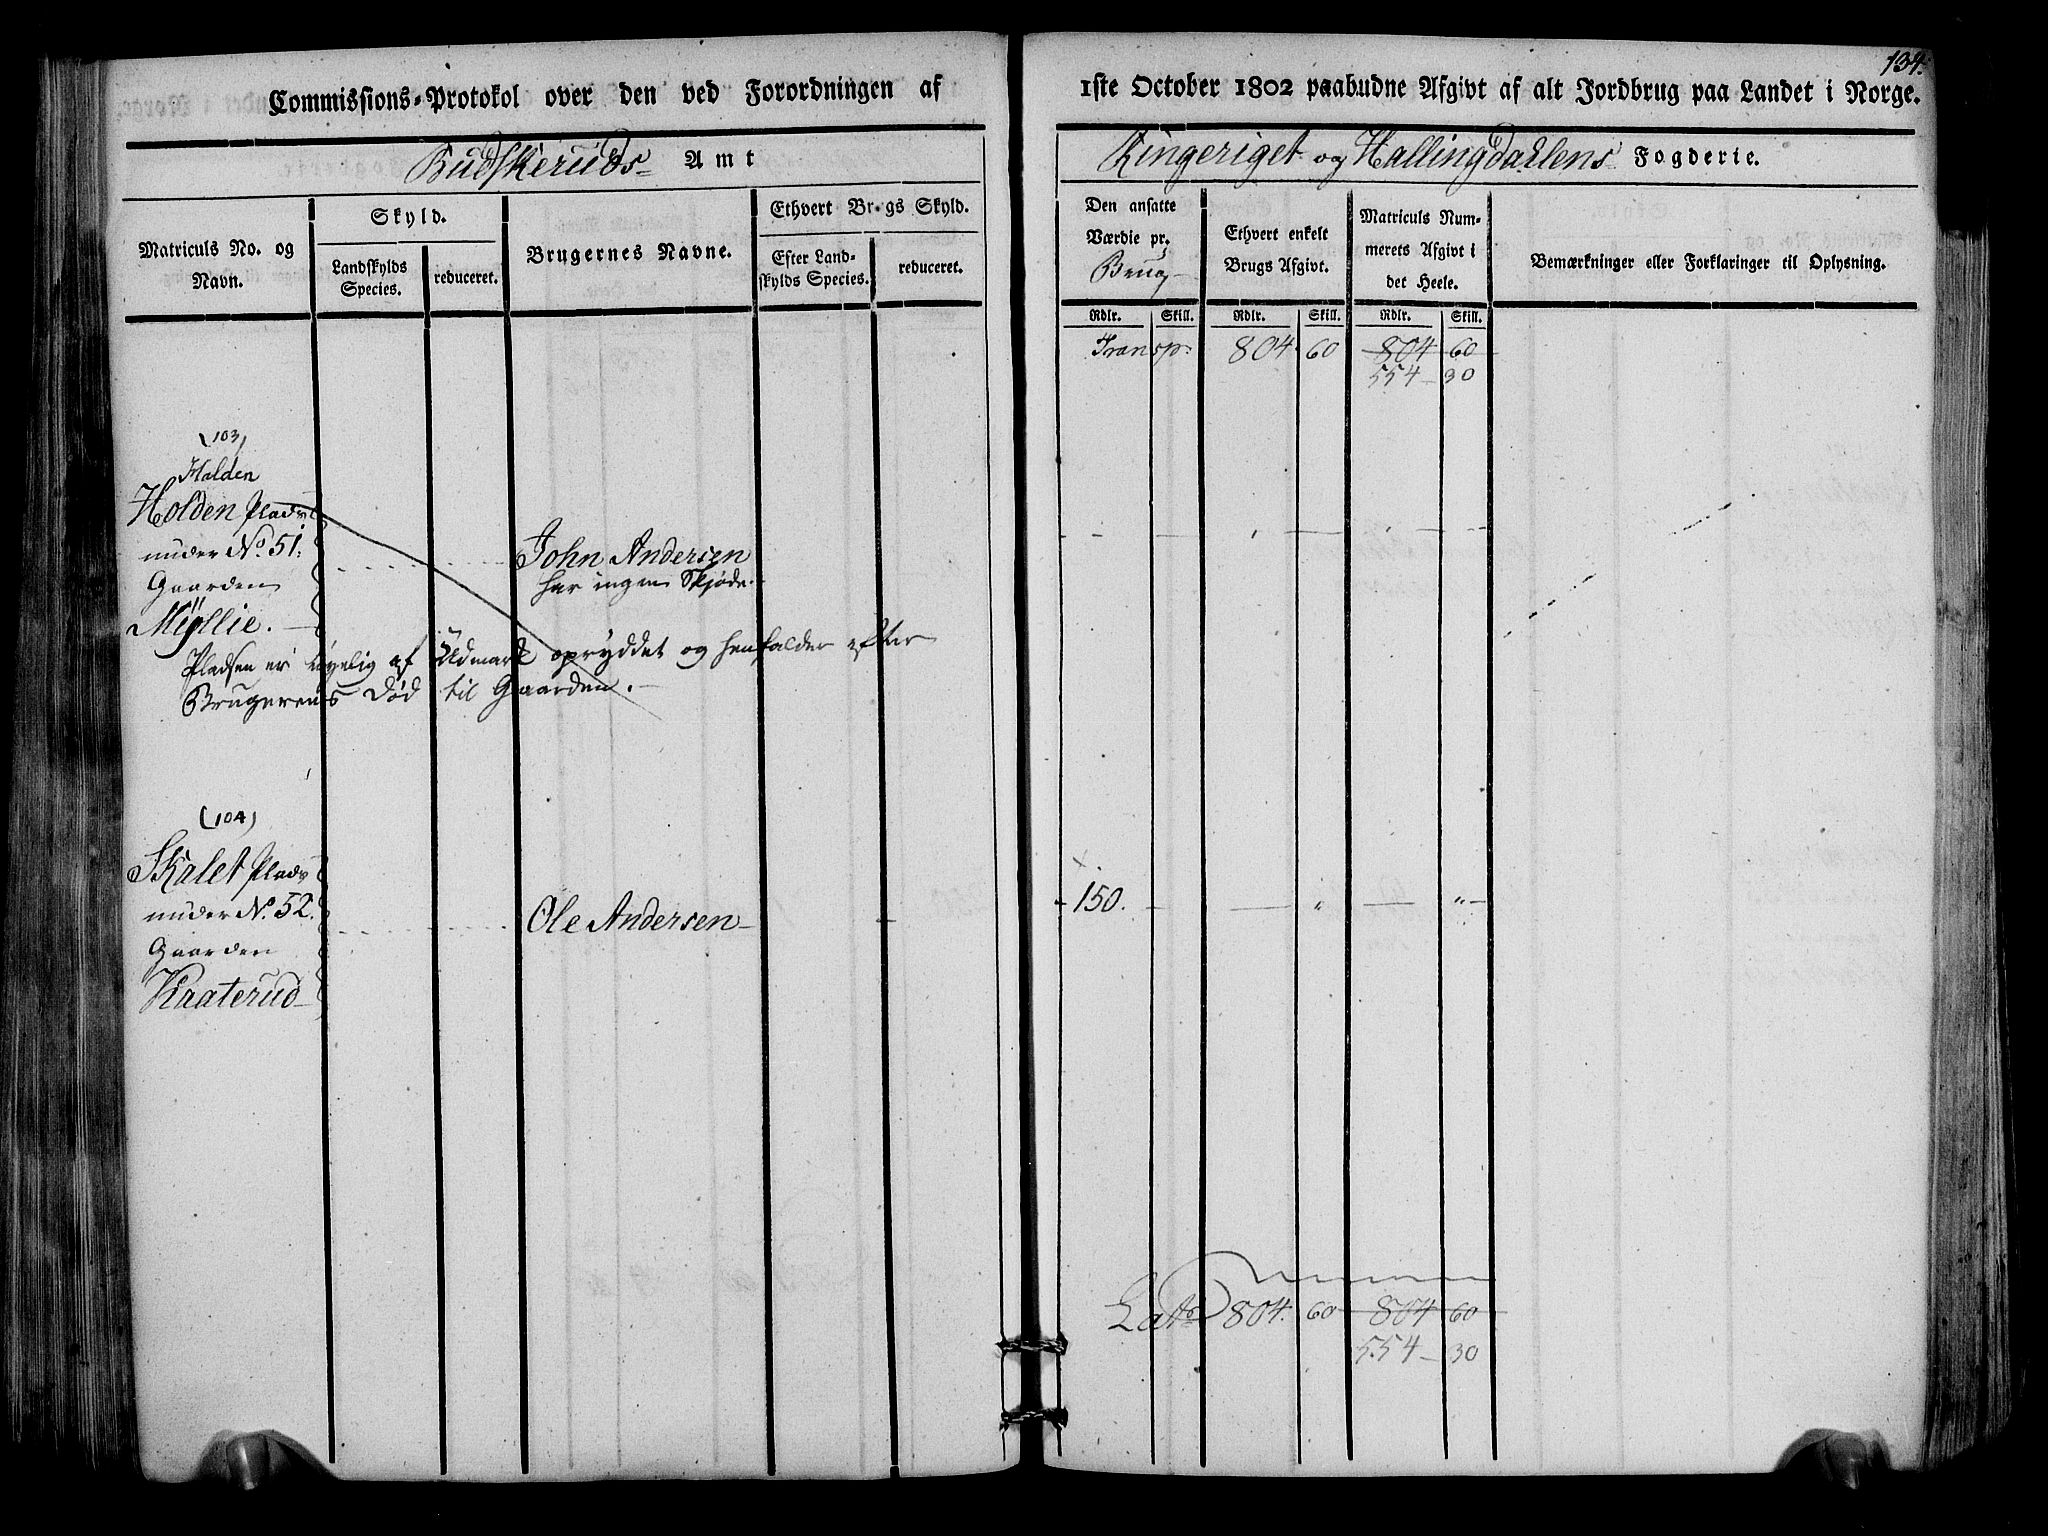 134.
Commissions-Protokol over den ved Forordningen af
1ste October 1802 paabudne Afgivt af alt Jordbrug paa Landet i Norge.
Budskeruds Amt
Ringeriget og Hallingdahlens Fogderie.
Matriculs No. og Navn.
Skyld.
Landskylds Species.
reduceret.
Brugernes Navne.
Ethvert Brugs Skyld.
Efter Landskylds Species.
reduceret.
Den ansatte Værdie pr. Brug
Ethvert enkelt Brugs Afgivt.
Matriculs Nummerets Afgivt i det Heele.
Bemærkninger eller Forklaringer til Oplysning.
Rdlr. Skill. Rdlr. Skill. Rdlr. Skill.
Transp: 804. 60 804 60
554 - 30
(103)
Halden
Holden Plads
under No. 51.
Gaarden
Myllie.
John Andersen
har ingen Skjøde.
Pladsen er nyelig af Udmark opryddet og henfalder efter
Brugerens Død til Gaarden.
(104)
Skalet Plads
under No. 52.
Gaarden
Kraterud
Ole Andersen
150. - — " — "
Lats 804. 60 804 60
554 - 30